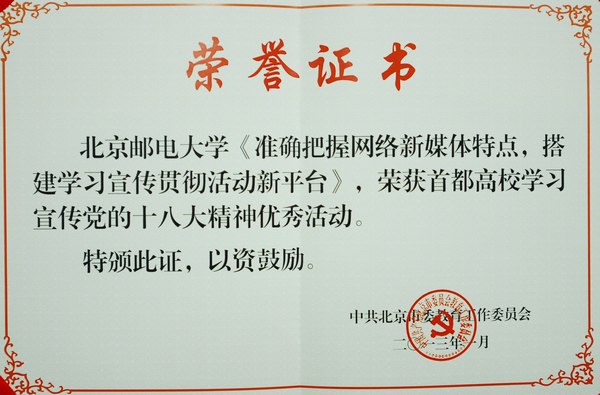 荣誉证书
北京邮电大学《准确把握网络新媒体特点，搭
建学习宣传贯彻活动新平台》，荣获首都高校学习
宣传党的十八大精神优秀活动。
特颁此证，以资鼓励。
中共北京市委教育工作委员会
二〇一三年一月